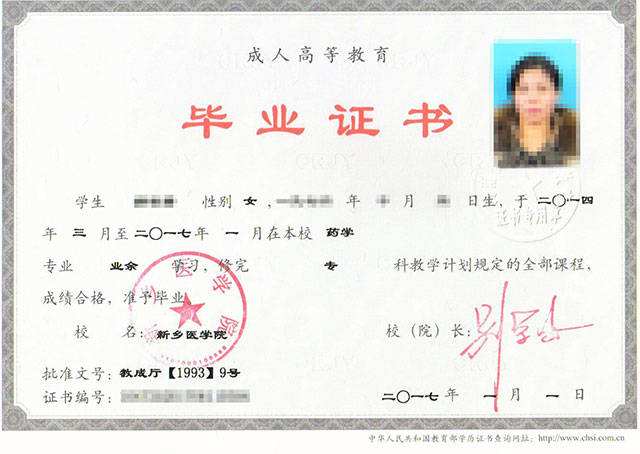 成人高等教育
毕业证书
学生 性别 女, 年 月 日生,于二〇一四
年 三 月至二〇一七年 一 月在本校 药学
专业 业余 学习,修完 专 科教学计划规定的全部课程,
成绩合格,准予毕业。
校 名:新乡医学院 校(院)长:
批准文号:教成厅【1993】9号
证书编号: 二〇一七年 一月一日
中华人民共和国教育部学历证书查询网址:http://www.chsi.com.cn